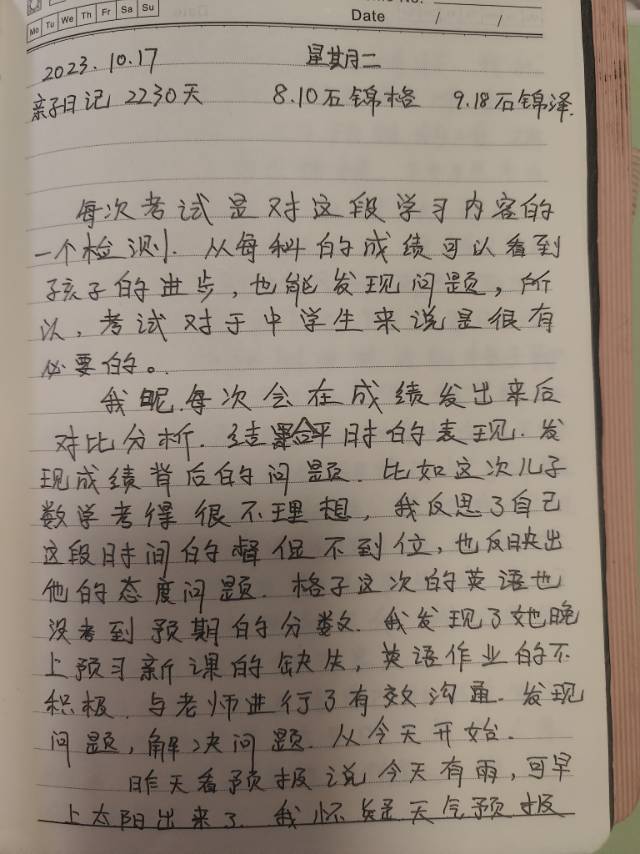 Mo Tu We Th Fr Sa Su
Date / /
2023.10.17 星期二
亲子日记 2230天 8.10石锦格 9.18石锦泽.
每次考试是对这段学习内容的
一个检测. 从每科的成绩可以看到
孩子的进步, 也能发现问题, 所
以, 考试对于中学生来说是很有
必要的。
我呢.每次会在成绩发出来后
对比分析. 结合平时的表现. 发
现成绩背后的问题. 比如这次儿子
数学考得很不理想, 我反思了自己
这段时间的督促不到位, 也反映出
他的态度问题. 格子这次的英语也
没考到预期的分数. 我发现了她晚
上预习新课的缺失, 英语作业的不
积极. 与老师进行了有效沟通. 发现
问题, 解决问题. 从今天开始.
昨天看预报说今天有雨, 可早
上太阳出来了. 我怀疑天气预报